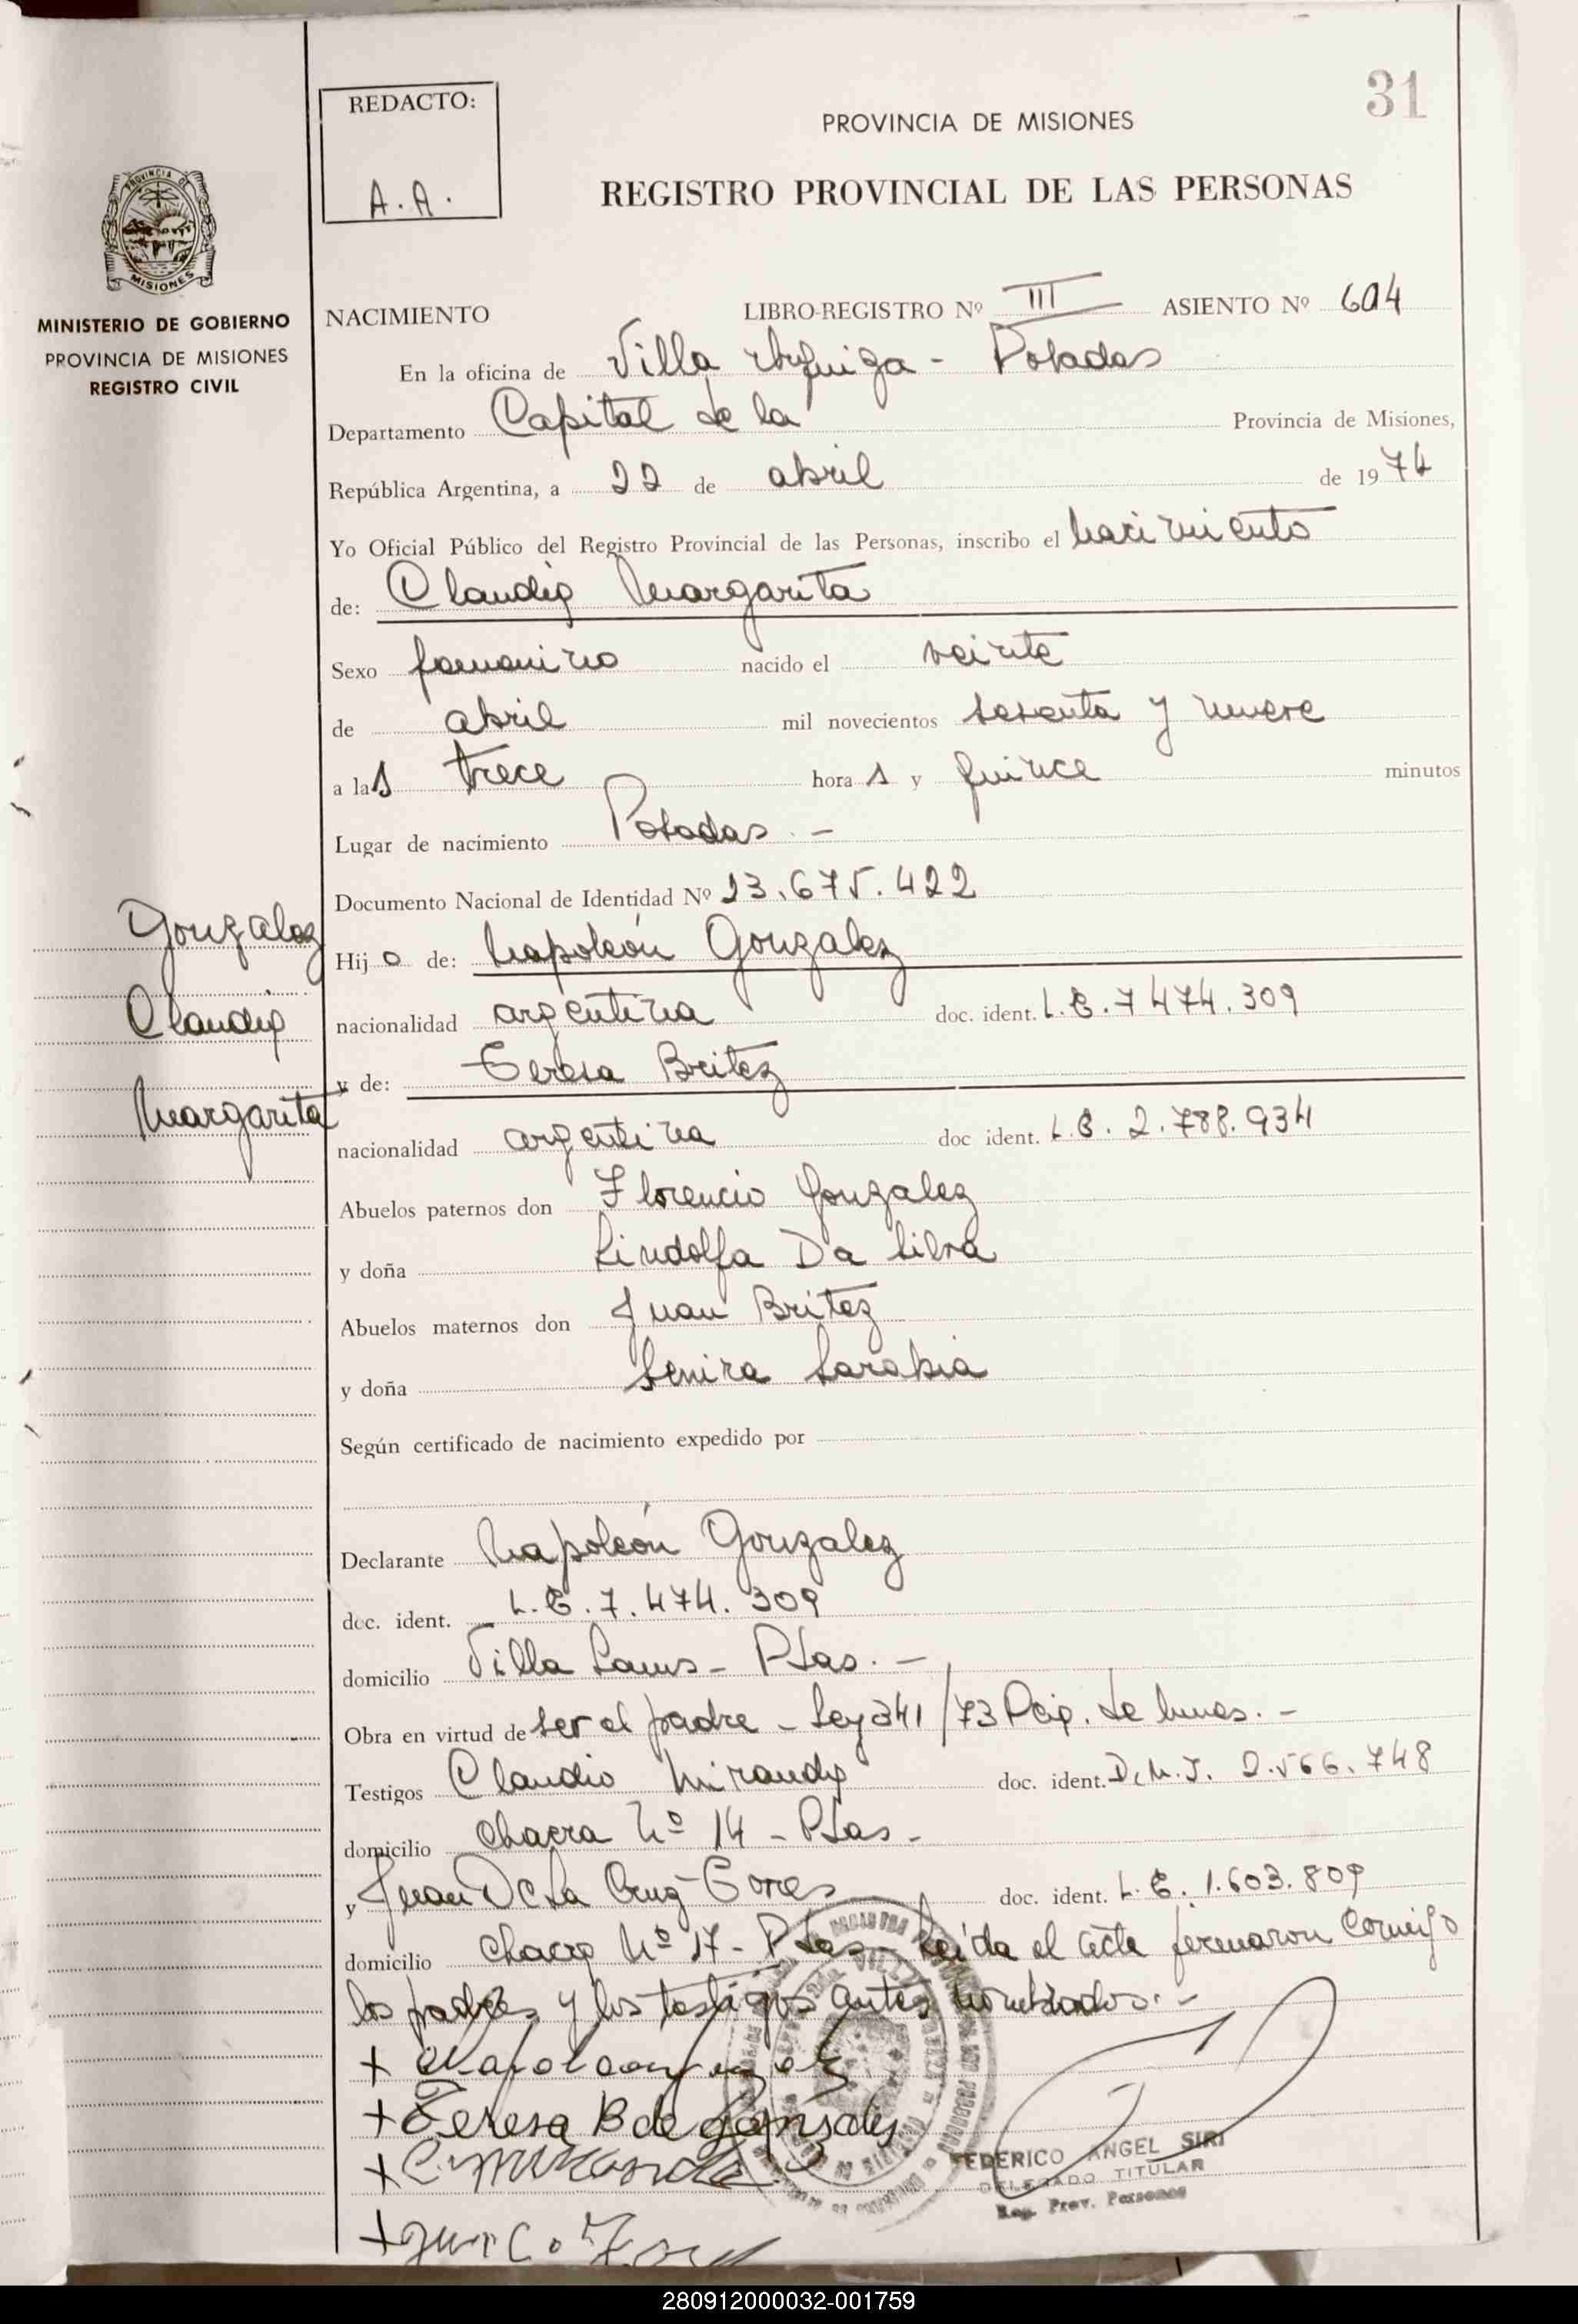 31
REDACTO:
A.A.
PROVINCIA DE MISIONES
REGISTRO PROVINCIAL DE LAS PERSONAS
PROVINCIA DE
MISIONES
MINISTERIO DE GOBIERNO
PROVINCIA DE MISIONES
REGISTRO CIVIL
NACIMIENTO LIBRO-REGISTRO Nº III ASIENTO Nº 604
En la oficina de Villa Urquiza - Posadas
Departamento Capital de la Provincia de Misiones,
República Argentina, a 22 de abril de 1974
Yo Oficial Público del Registro Provincial de las Personas, inscribo el nacimiento
de: Claudia Margarita
Sexo femenino nacido el veinte
de abril mil novecientos sesenta y nueve
a las trece horas y quince minutos
Lugar de nacimiento Posadas. -
Documento Nacional de Identidad Nº 23.675.422
Gonzalez
Claudia
Margarita
Hijo de: Napoleón Gonzalez
nacionalidad argentina doc. ident. L.E. 7.474.309
y de: Teresa Britez
nacionalidad argentina doc ident. L.C. 2.788.934
Abuelos paternos don Florencio Gonzalez
y doña Lindolfa Da Silva
Abuelos maternos don Juan Britez
y doña Senira Sarabia
Según certificado de nacimiento expedido por
Declarante Napoleón Gonzalez
doc. ident. L.E. 7.474.309
domicilio Villa Lanus - Pdas. -
Obra en virtud de ser el padre - Ley 341/73 Pcia. de Mnes. -
Testigos Claudio Miranda doc. ident. D.N.I. 2.566.748
domicilio Chacra Nº 14 - Pdas -
y Juan De La Cruz doc. ident. L.E. 1.603.809
domicilio Chacra Nº 17 - Pdas - Leida el acta firmaron conmigo
los padres y los testigos antes nombrados. -
+ Teresa B de Gonsales
FEDERICO ANGEL SIRI
DELEGADO TITULAR
Reg. Prov. Personas
280912000032-001759